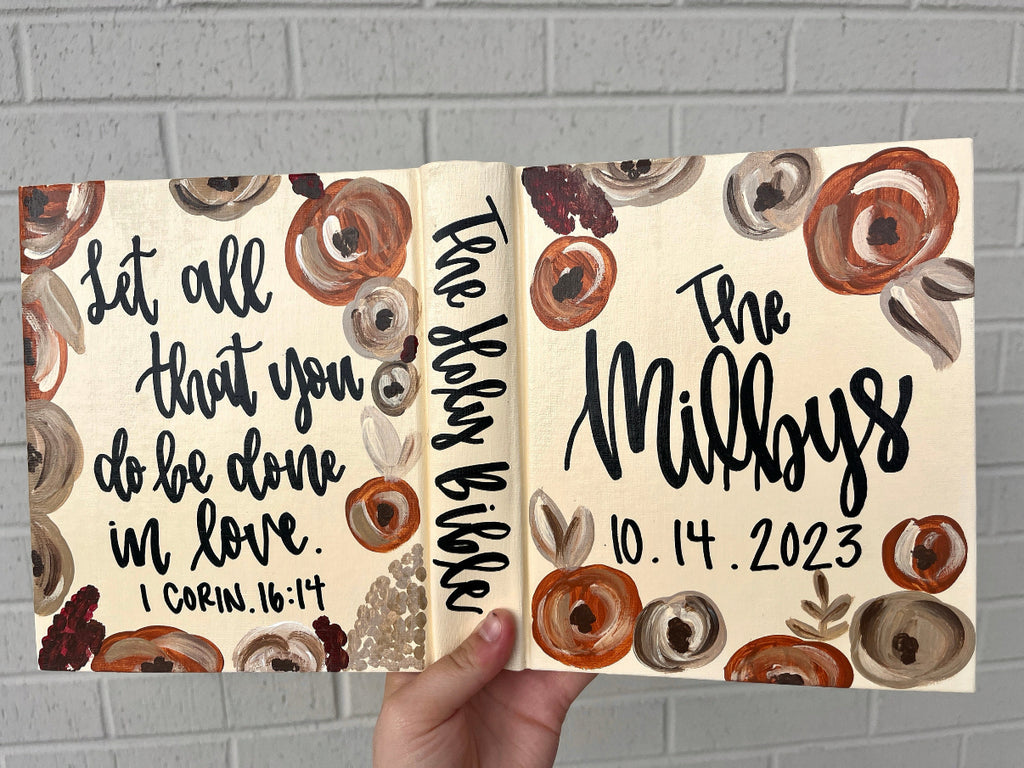 Let all
that you
do be done
in love.
1 CORIN. 16:14
The Holy Bible
The
Milbys
10.14.2023